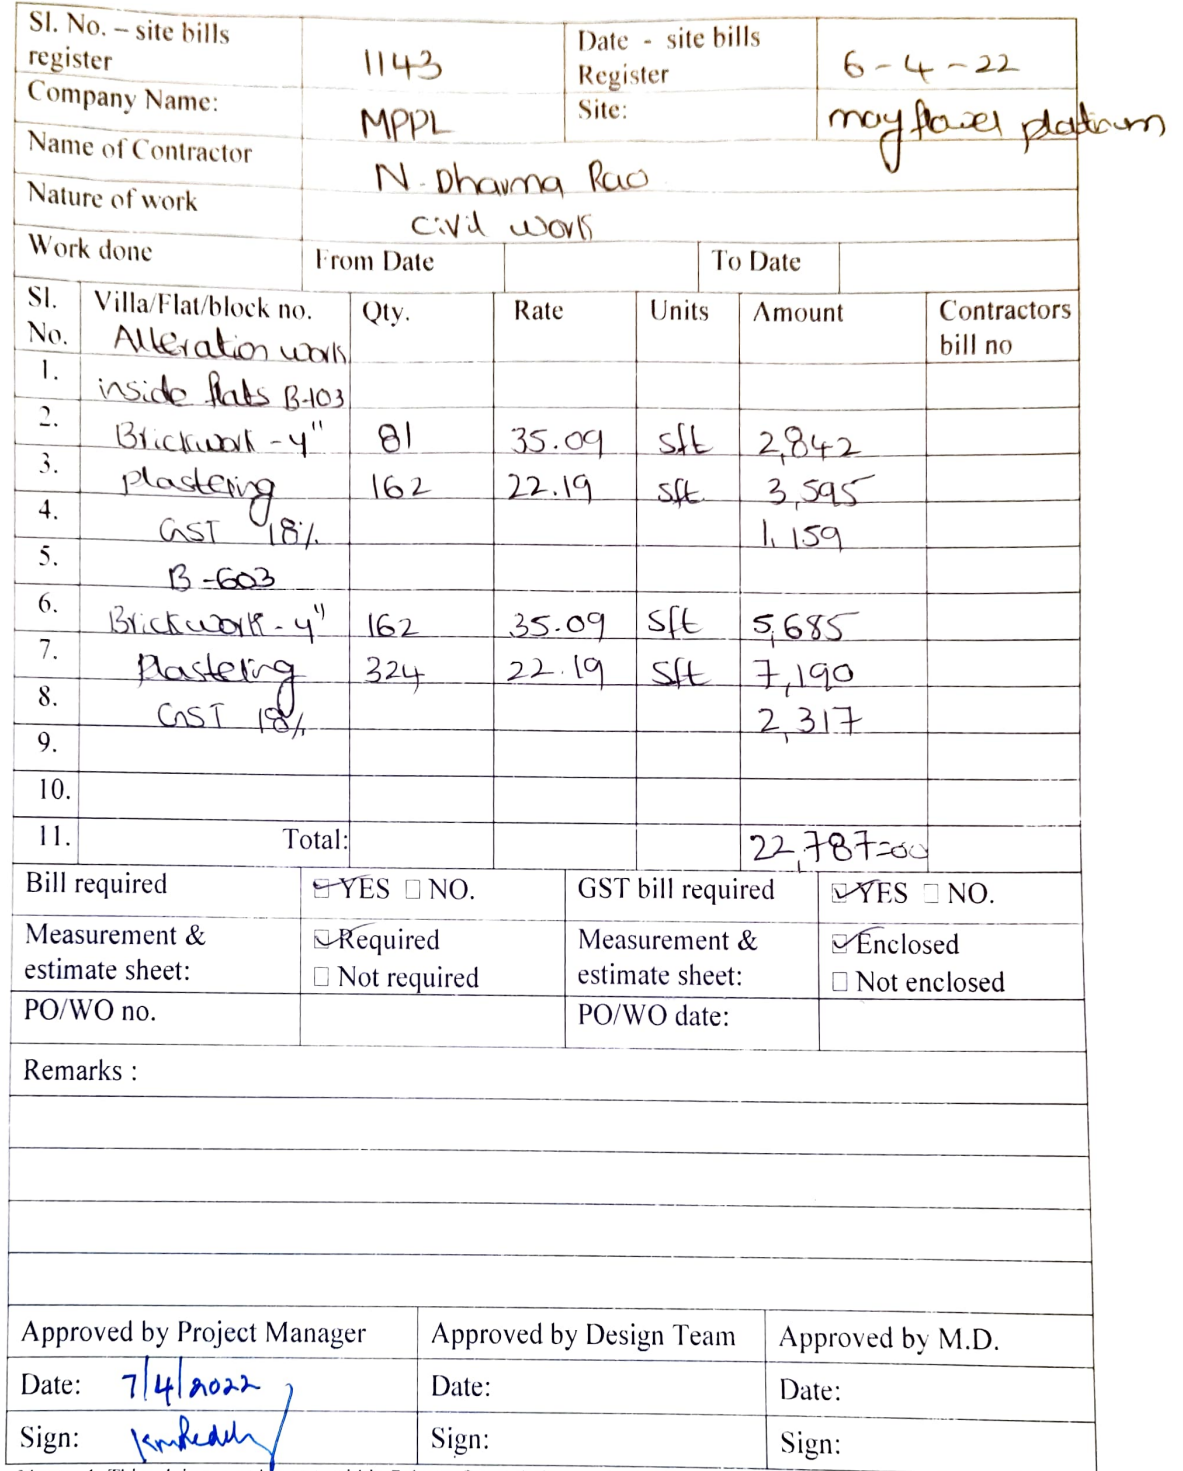 Sl. No. – site bills register 1143 Date - site bills Register 6-4-22
Company Name: MPPL Site: mayflower platinum
Name of Contractor N. Dharma Rao
Nature of work Civil work
Work done From Date To Date
Sl. No. Villa/Flat/block no. Qty. Rate Units Amount Contractors bill no
Alteration work
1. inside flats B-103
2. Brickwork - 4" 81 35.09 sft 2,842
3. plastering 162 22.19 sft 3,595
4. GST 18% 1,159
5. B-603
6. Brickwork - 4" 162 35.09 sft 5,685
7. Plastering 324 22.19 sft 7,190
8. GST 18% 2,317
9.
10.
11. Total: 22,787=00
Bill required ☑ YES ☐ NO. GST bill required ☑ YES ☐ NO.
Measurement & estimate sheet: ☑ Required ☐ Not required Measurement & estimate sheet: ☑ Enclosed ☐ Not enclosed
PO/WO no. PO/WO date:
Remarks :
Approved by Project Manager Approved by Design Team Approved by M.D.
Date: 7/4/2022 Date: Date:
Sign: Sign: Sign: